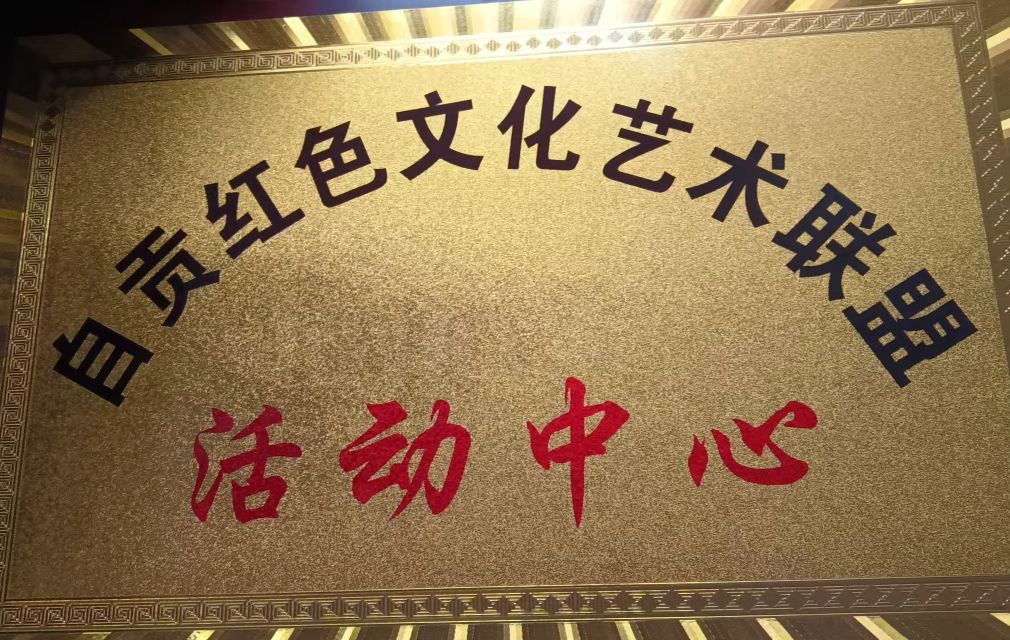 自贡红色文化艺术联盟
活动中心